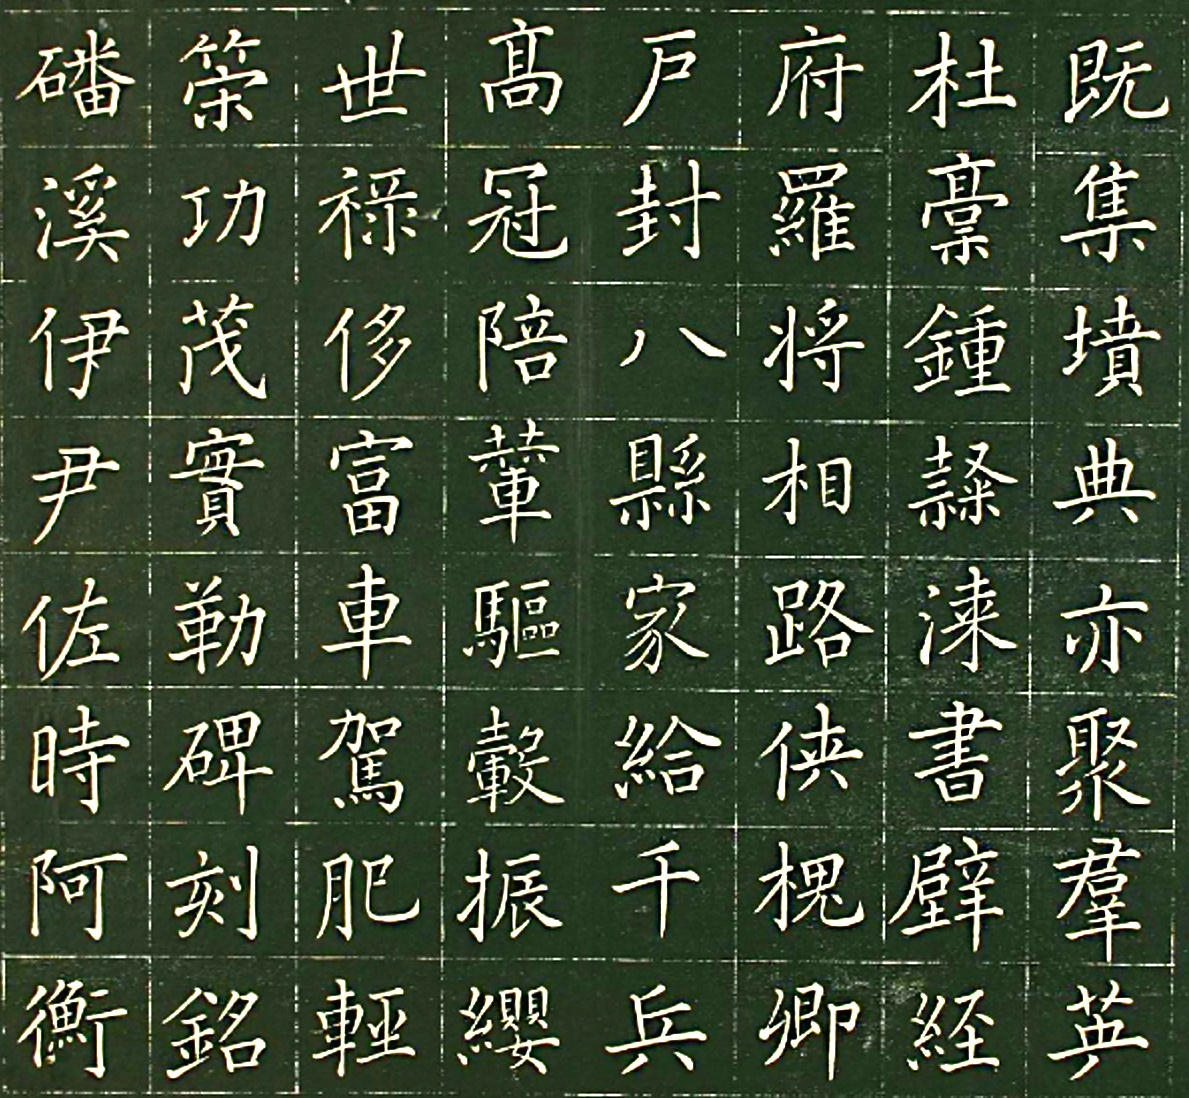 既集墳典亦聚羣英
杜稾鍾隸漆書壁経
府羅将相路侠槐卿
戸封八縣家給千兵
髙冠陪輦驅轂振纓
世禄侈富車駕肥輕
策功茂實勒碑刻銘
磻溪伊尹佐時阿衡